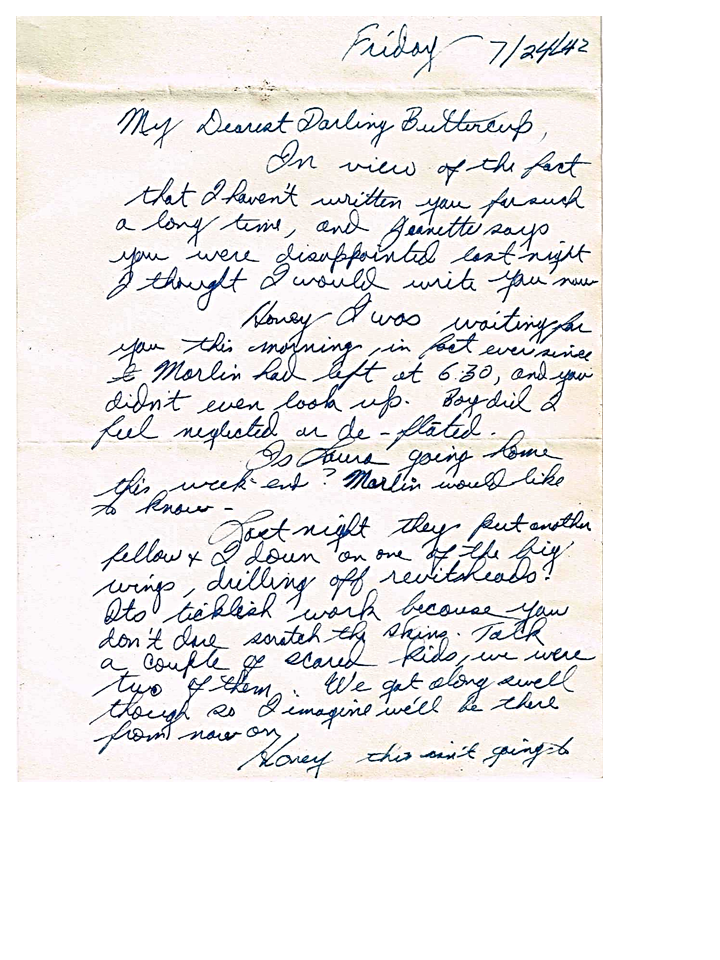 Friday 7/24/42
My Dearest Darling Buttercup,
In view of the fact
that I haven't written you for such
a long time, and Jeanette says
you were disappointed last night
I thought I would write you now
Honey I was waiting for
you this morning, in fact ever since
Marlin had left at 6:30, and you
didn't even look up. Boy did I
feel neglected or de-flated.
Is Laura going home
this week-end? Marlin would like
to know-
Last night they put another
fellow & I down on one of the big
wings, drilling off revitsheads.
Its ticklish work because you
don't dare scratch the skins. Talk
a couple of scared kids, we were
two of them. We got along swell
though so I imagine we'll be there
from now on,
Honey this isn't going to